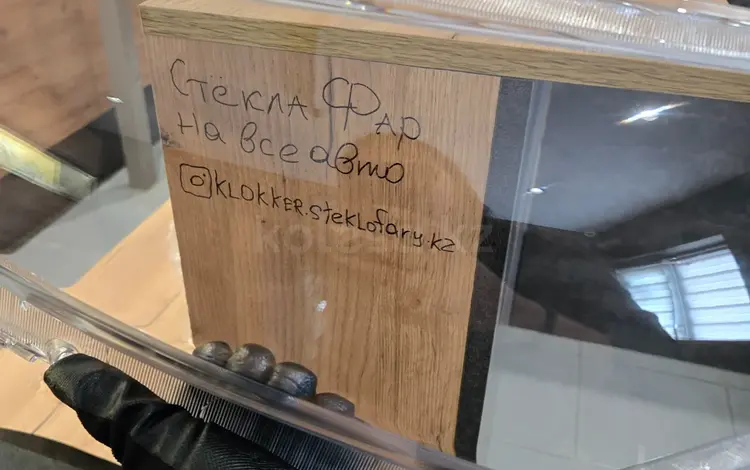 Стёкла Фар
на все авто
KLOKKER.steklofary.kz